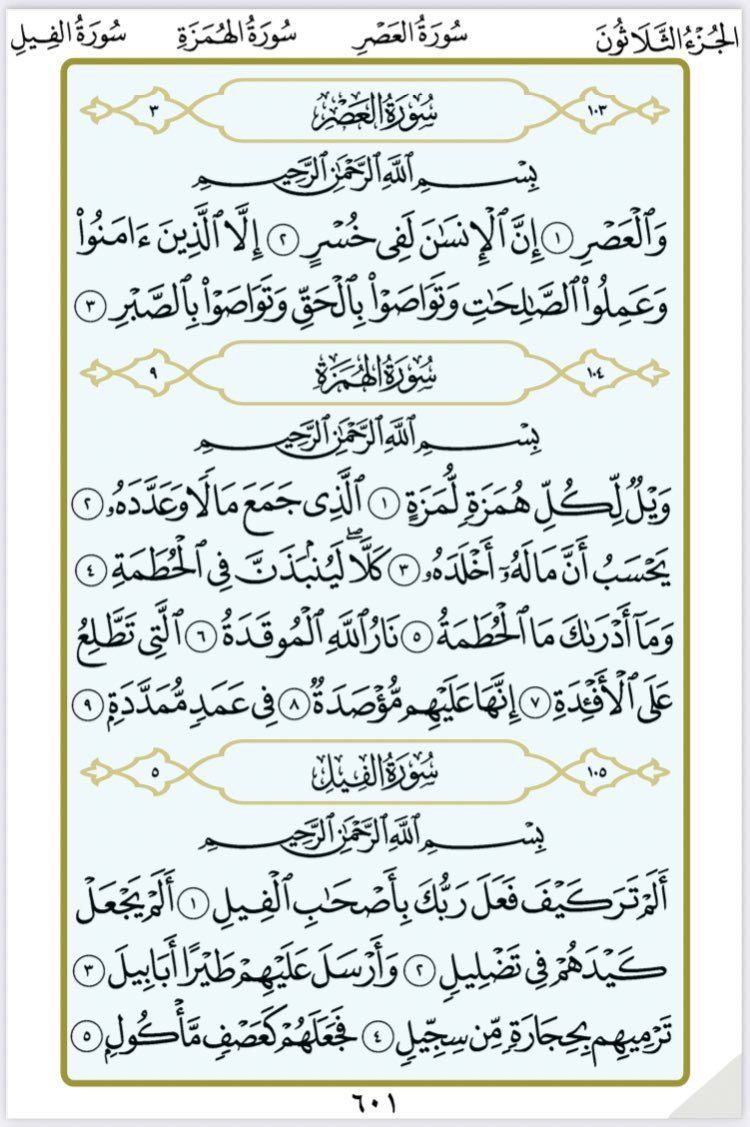 الجُزْءُ الثَّلَاثُونَ سُورَةُ العَصْرِ سُورَةُ الهُمَزَةِ سُورَةُ الفِيلِ
١٠٣ سُورَةُ العَصْرِ ٣
بِسْمِ ٱللَّهِ ٱلرَّحْمَٰنِ ٱلرَّحِيمِ
وَٱلْعَصْرِ ١ إِنَّ ٱلْإِنسَٰنَ لَفِى خُسْرٍ ٢ إِلَّا ٱلَّذِينَ ءَامَنُوا۟
وَعَمِلُوا۟ ٱلصَّٰلِحَٰتِ وَتَوَاصَوْا۟ بِٱلْحَقِّ وَتَوَاصَوْا۟ بِٱلصَّبْرِ ٣
١٠٤ سُورَةُ الهُمَزَةِ ٩
بِسْمِ ٱللَّهِ ٱلرَّحْمَٰنِ ٱلرَّحِيمِ
وَيْلٌ لِّكُلِّ هُمَزَةٍ لُّمَزَةٍ ١ ٱلَّذِى جَمَعَ مَالًا وَعَدَّدَهُۥ ٢
يَحْسَبُ أَنَّ مَالَهُۥٓ أَخْلَدَهُۥ ٣ كَلَّا ۖ لَيُنۢبَذَنَّ فِى ٱلْحُطَمَةِ ٤
وَمَآ أَدْرَىٰكَ مَا ٱلْحُطَمَةُ ٥ نَارُ ٱللَّهِ ٱلْمُوقَدَةُ ٦ ٱلَّتِى تَطَّلِعُ
عَلَى ٱلْأَفْـِٔدَةِ ٧ إِنَّهَا عَلَيْهِم مُّؤْصَدَةٌ ٨ فِى عَمَدٍ مُّمَدَّدَةٍۭ ٩
١٠٥ سُورَةُ الفِيلِ ٥
بِسْمِ ٱللَّهِ ٱلرَّحْمَٰنِ ٱلرَّحِيمِ
أَلَمْ تَرَ كَيْفَ فَعَلَ رَبُّكَ بِأَصْحَٰبِ ٱلْفِيلِ ١ أَلَمْ يَجْعَلْ
كَيْدَهُمْ فِى تَضْلِيلٍ ٢ وَأَرْسَلَ عَلَيْهِمْ طَيْرًا أَبَابِيلَ ٣
تَرْمِيهِم بِحِجَارَةٍ مِّن سِجِّيلٍ ٤ فَجَعَلَهُمْ كَعَصْفٍ مَّأْكُولٍۭ ٥
٦٠١